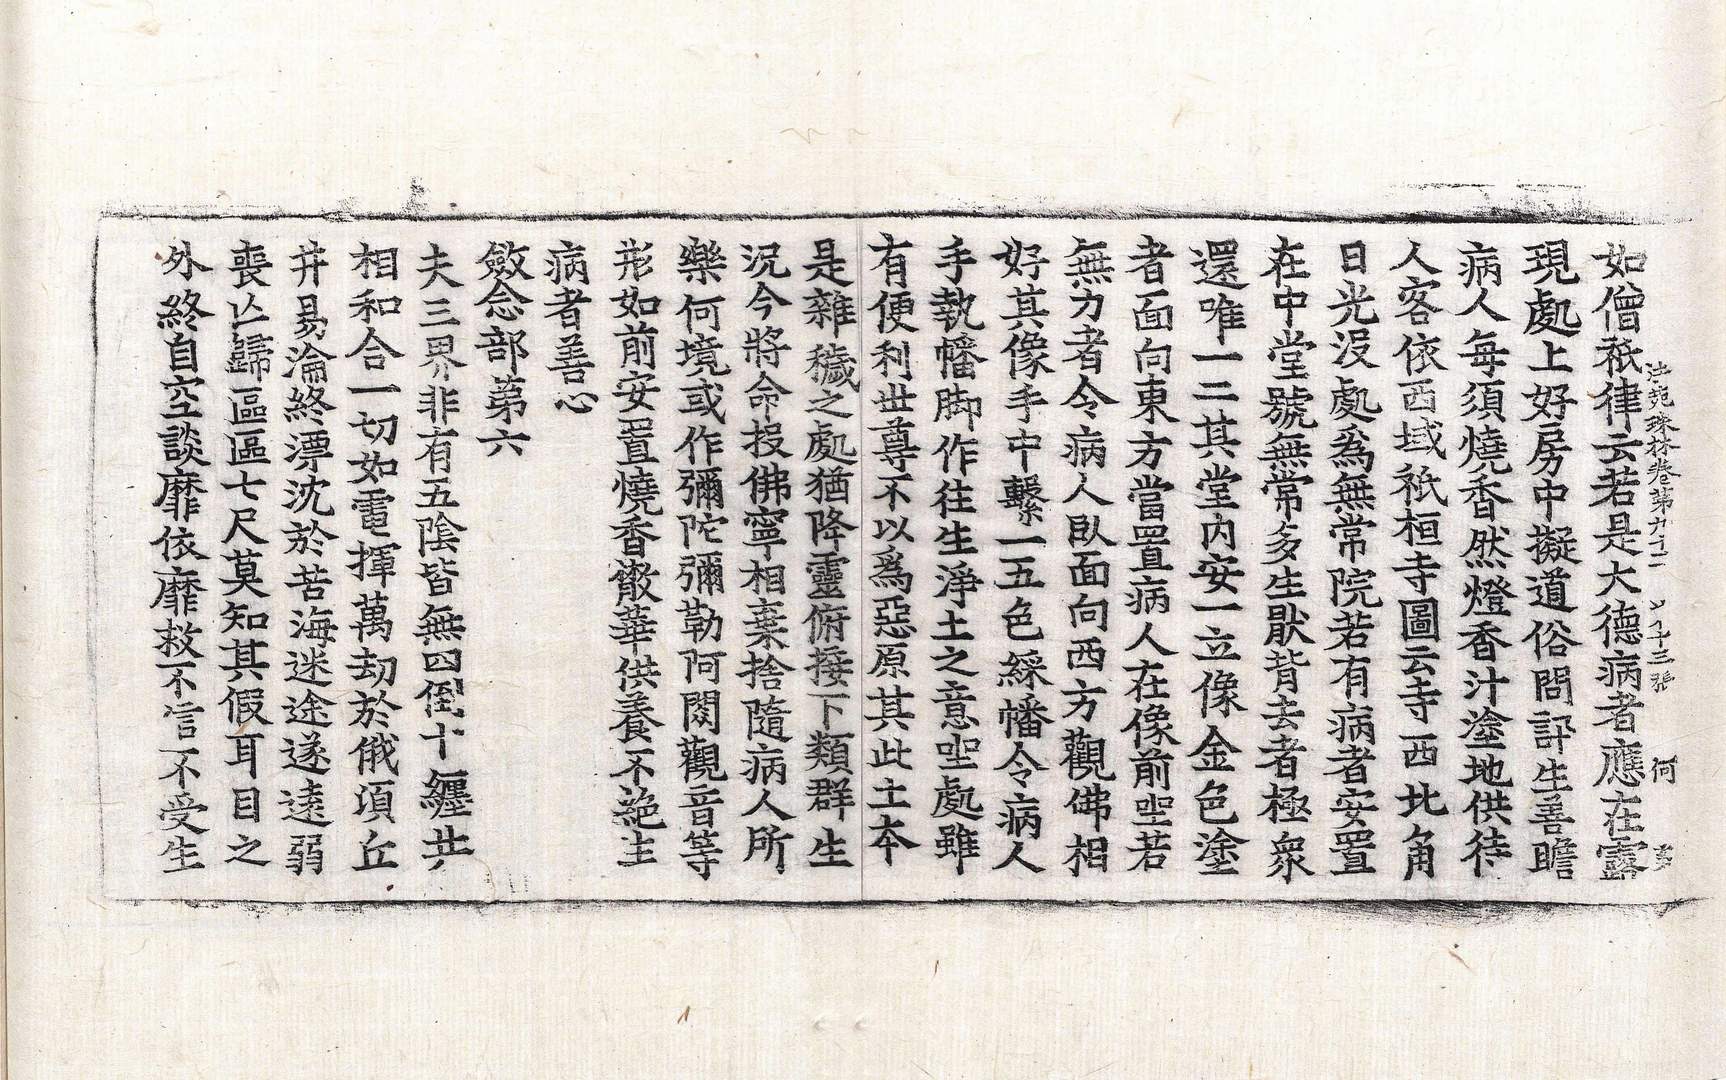 法苑珠林卷第九十二 第十三張 何
如僧祇律云若是大德病者應在露
現處上好房中擬道俗問訊生善瞻
病人每須燒香然燈香汁塗地供待
人客依西域祇桓寺圖云寺西北角
日光没處爲無常院若有病者安置
在中堂號無常多生厭背去者極衆
還唯一二其堂内安一立像金色塗
者面向東方當置病人在像前坐若
無力者令病人臥面向西方觀佛相
好其像手中繫一五色綵幡令病人
手執幡脚作往生淨土之意坐處雖
有便利世尊不以爲惡原其此土本
是雜穢之處猶降靈俯接下類群生
況今將命投佛寧相棄捨隨病人所
樂何境或作彌陀彌勒阿閦觀音等
形如前安置燒香散華供養不絶生
病者善心
斂念部第六
夫三界非有五陰皆無四倒十纏共
相和合一切如電揮萬劫於俄頃丘
井易淪終漂沈於苦海迷途遂遠弱
喪亾歸區區七尺莫知其假耳目之
外終自空談靡依靡救不信不受生